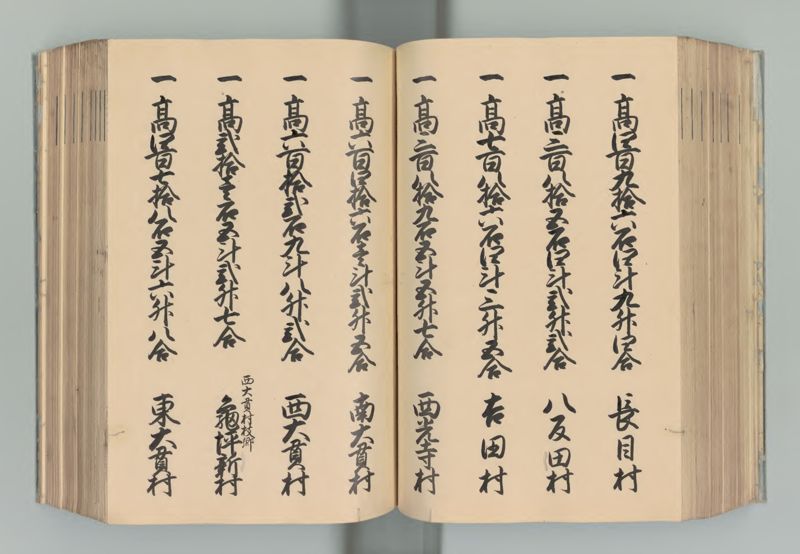 一高四百九拾六石四斗九升四合 長目村
一高二百八拾五石四斗弐升弐合 八反田村
一高七百八拾六石四斗三升五合 吉田村
一高二百八拾九石五斗五升七合 西光寺村
一高六百四拾六石壱斗弐升五合 南大貫村
一高六百拾弐石九斗八升弐合 西大貫村
西大貫村枝郷
一高弐拾壱石五斗弐升七合 亀坪新村
一高四百七拾八石五斗六升八合 東大貫村